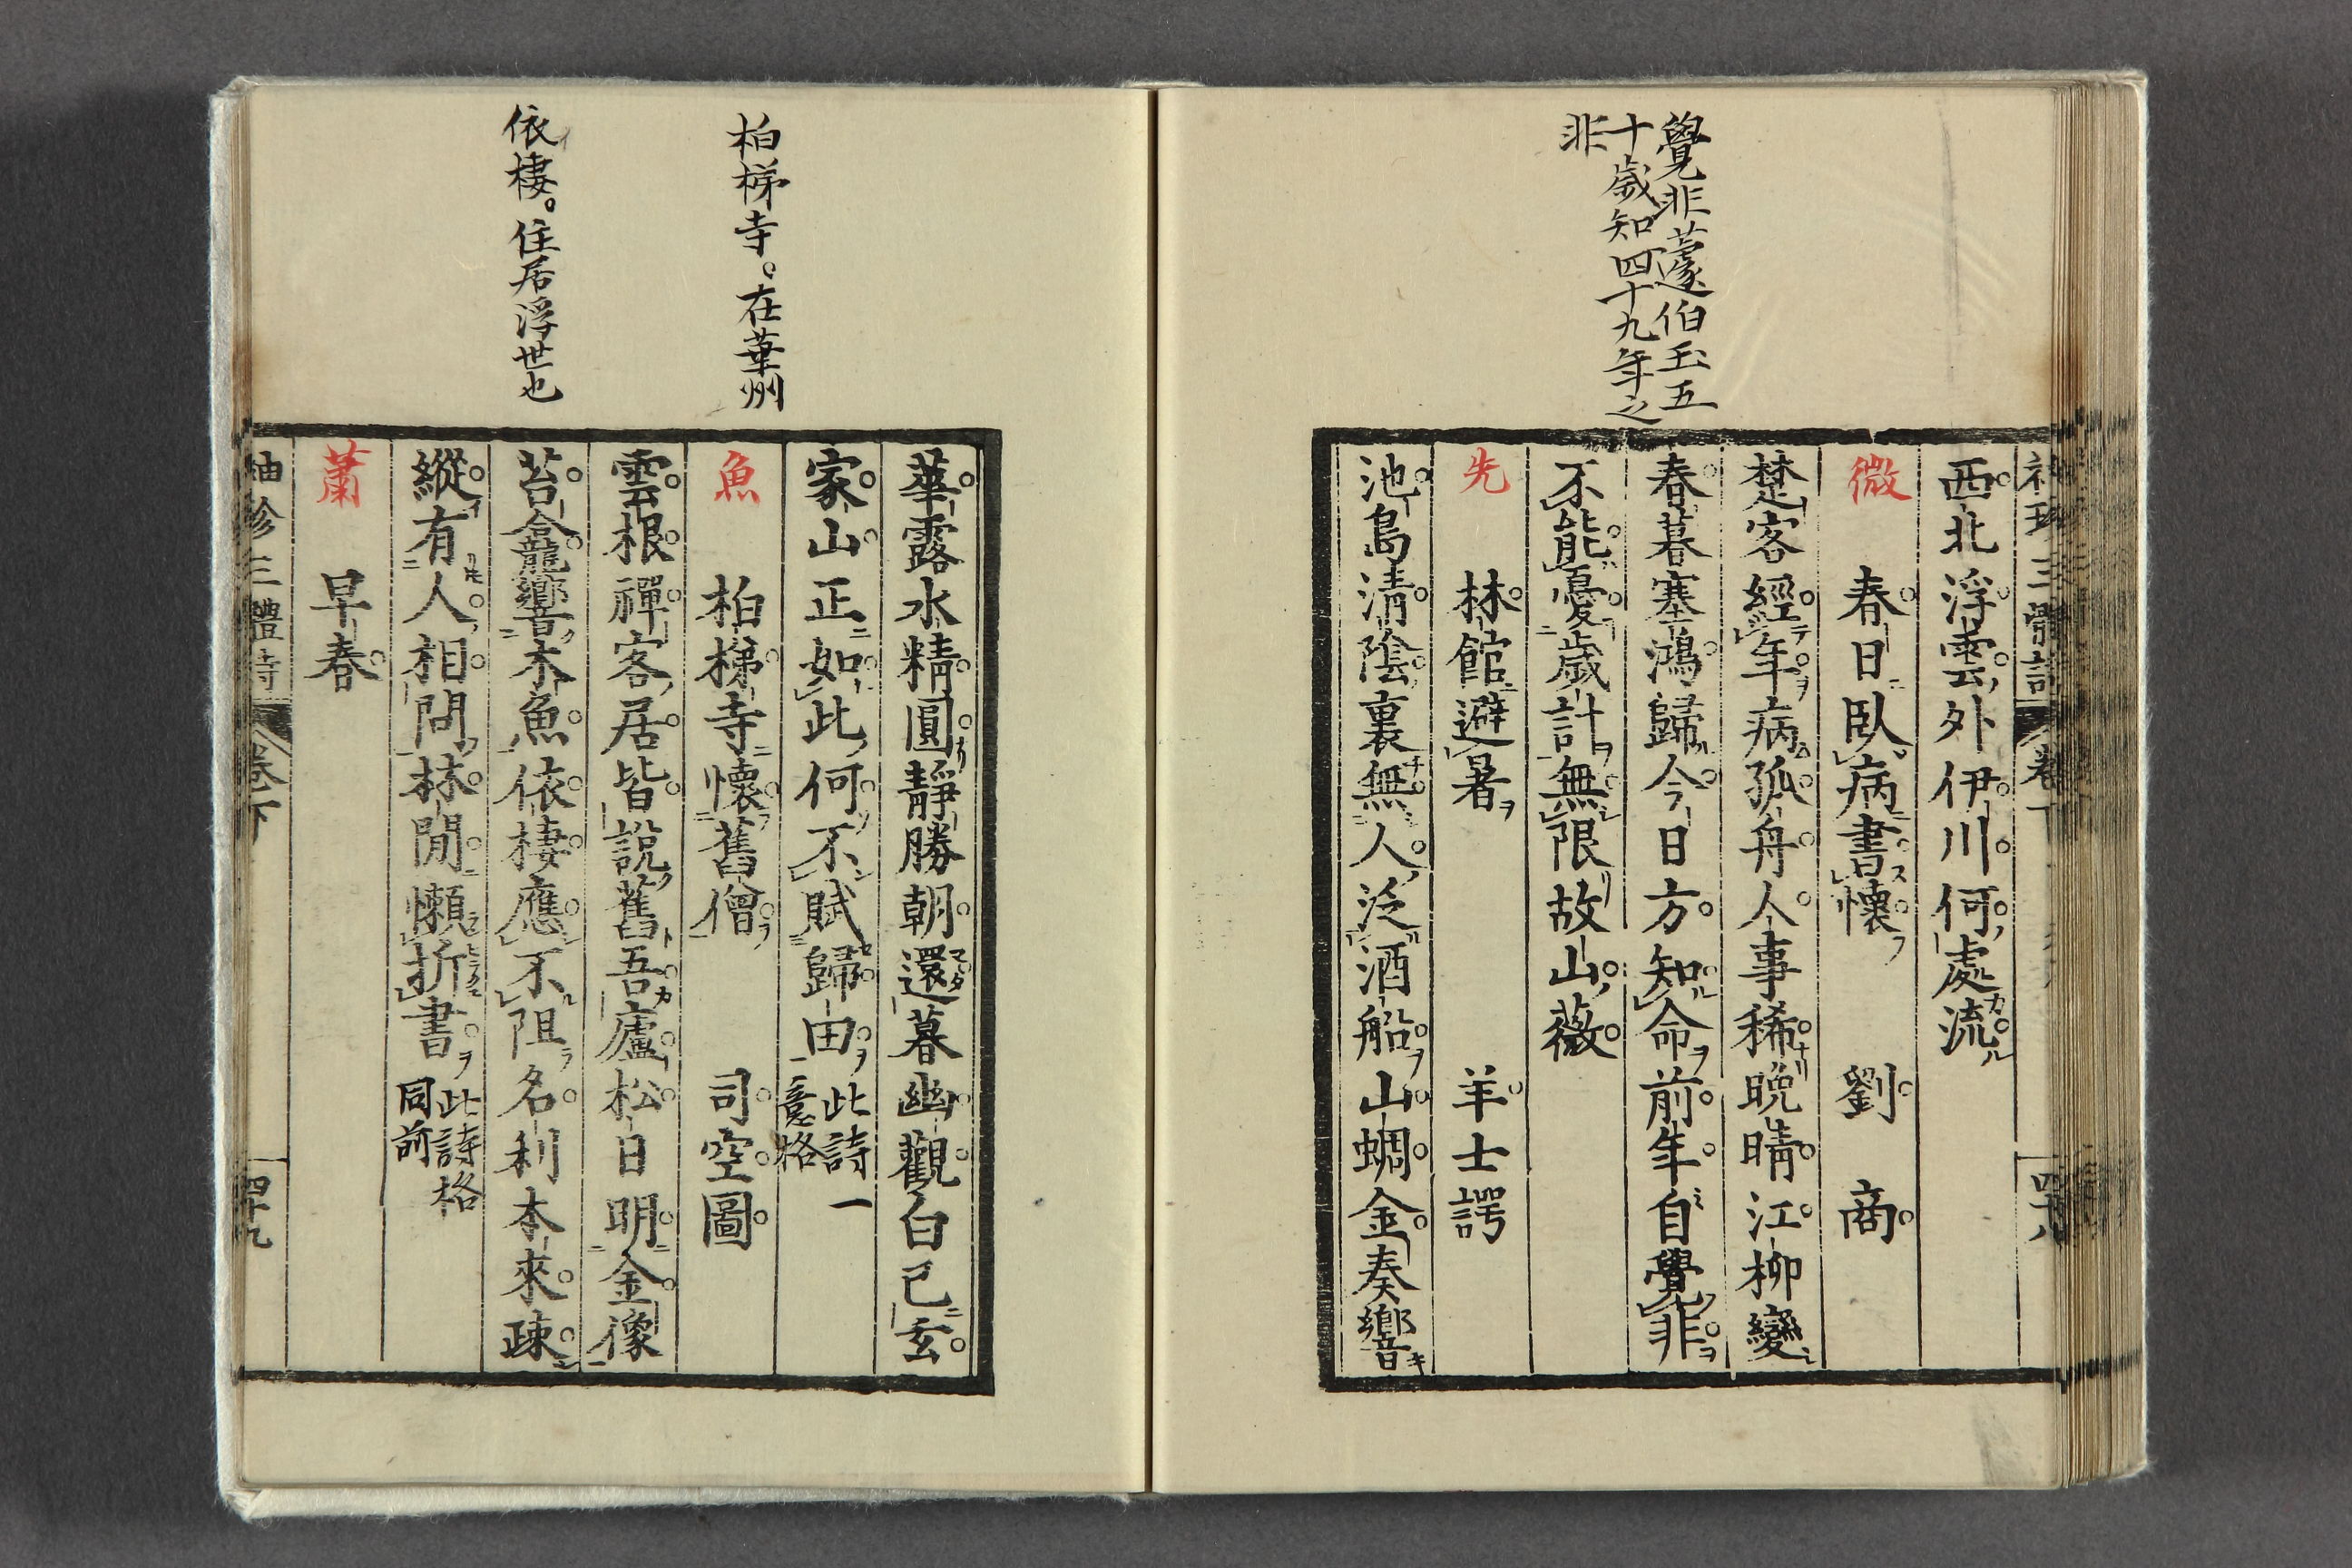 覺非蘧伯玉五
十歲知四十九年之
非
西北浮雲外伊川何處流
微 春日臥病書懷 劉商
楚客經年病孤舟人事稀晚晴江柳變
春暮塞鴻歸今日方知命前年自覺非
不能憂歲計無限故山薇
先 林館避暑 羊士諤
池島清陰裏無人泛酒船山蜩金奏響
柏梯寺。在華州
依棲。住居浮世也
華露水精圓靜勝朝還暮幽觀白已玄
家山正如此何不賦歸田 此詩一
意格
魚 柏梯寺懷舊僧 司空圖
雲根禪客居皆說舊吾廬松日明金像
苔龕響木魚依棲應不阻名利本來疎
縱有人相問林閒懶折書 此詩格
同前
蕭 早春
袖珍三體詩 卷下 四十九